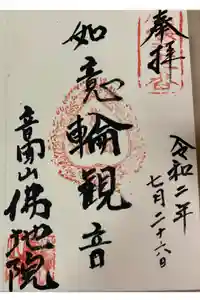 奉拝
令和二年
七月二十六日
如意輪観音
音開山佛地院